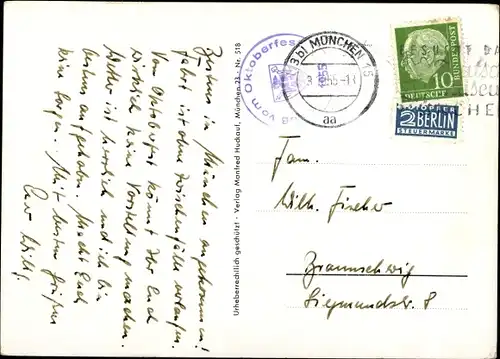 Bestens in München angekommen!
Fahrt ist ohne Zwischenfälle verlaufen.
Vom Oktoberfest könnt Ihr Euch
wirklich keine Vorstellung machen.
Wetter ist herrlich und ich bin
bestens aufgehoben. Macht Euch
keine Sorgen. Mit besten Grüßen
Euer Willi
Urheberrechtlich geschützt - Verlag Manfred Huckauf, München 23, Nr. 518
vom Oktoberfes
1955
(13b) MÜNCHEN 15
aa
DEUTSCHE BUNDESPOST
10
NOTOPFER
2 BERLIN
STEUERMARKE
Fam.
Wilh. Fischer
Braunschweig
Siegmundstr. 8